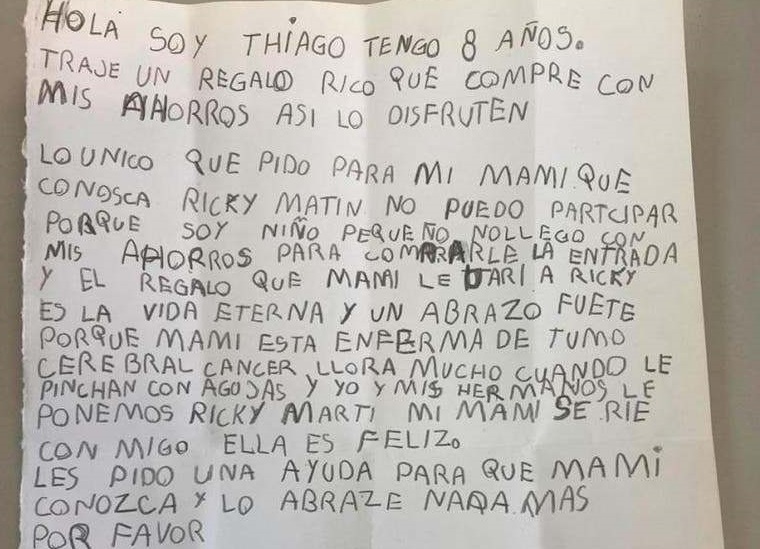 HOLA SOY THIAGO TENGO 8 AÑOS.
TRAJE UN REGALO RICO QUE COMPRE CON
MIS AHORROS ASI LO DISFRUTEN
LO UNICO QUE PIDO PARA MI MAMI QUE
CONOSCA RICKY MATIN NO PUEDO PARTCIPAR
PORQUE SOY NIÑO PEQUEÑO NO LLEGO CON
MIS AHORROS PARA COMPRARLE LA ENTRADA
Y EL REGALO QUE MAMI LE DARI A RICKY
ES LA VIDA ETERNA Y UN ABRAZO FUETE
PORQUE MAMI ESTA ENFERMA DE TUMO
CEREBRAL CANCER LLORA MUCHO CUANDO LE
PINCHAN CON AGUJAS Y YO Y MIS HERMANOS LE
PONEMOS RICKY MARTI MI MAMI SE RIE
CON MIGO ELLA ES FELIZ.
LES PIDO UNA AYUDA PARA QUE MAMI
CONOZCA Y LO ABRAZE NADA MAS
POR FAVOR